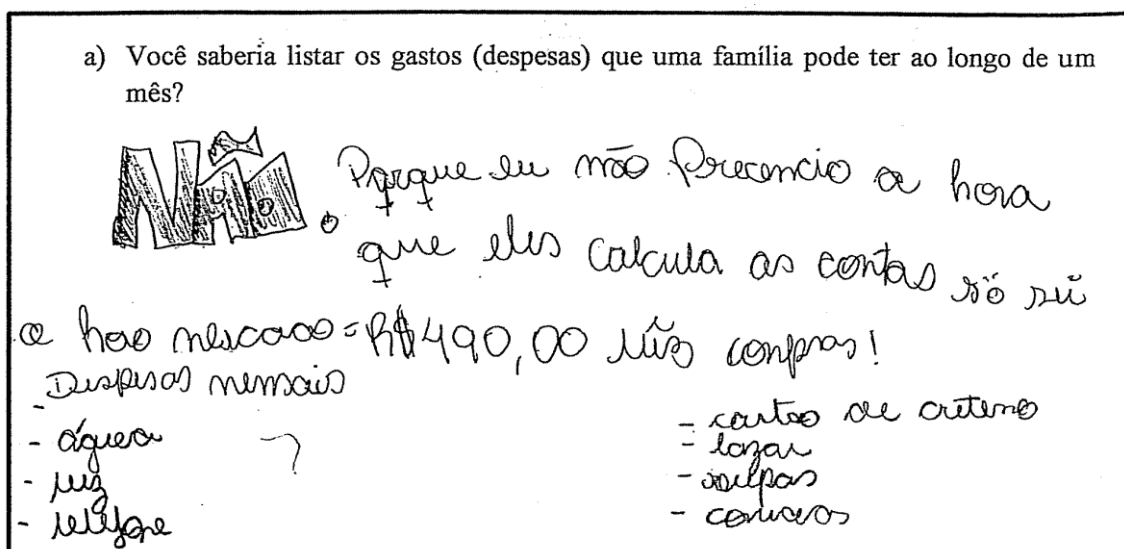 a) Você saberia listar os gastos (despesas) que uma família pode ter ao longo de um
mês?
NÃO. Porque eu não Precencio a hora
que eles calcula as contas só sei
a hora = R$490,00 mês compras!
Despesas mensais
- água
- luz
- telefone
- cartão de
- lazar
- roupas